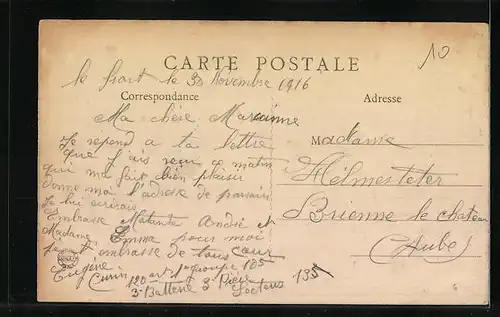 10
CARTE POSTALE
le front le 30 Novembre 1916
Correspondance
Adresse
Ma chère Marianne
Je repond a ta lettre
que j'ais reçu ce matin
qui ma fait bien plaisir
donne moi l'adresse de parrain
Je lui écrirais
Embrasse Matante André et
Madame Emma pour moi
embrasse de tous cœur
Eugène
Cunin 120 art 1e groupe 135
3e Batterie 3e Pièce
Secteur 135
Madame
Helmesteter
Brienne le chateau
(Aube)